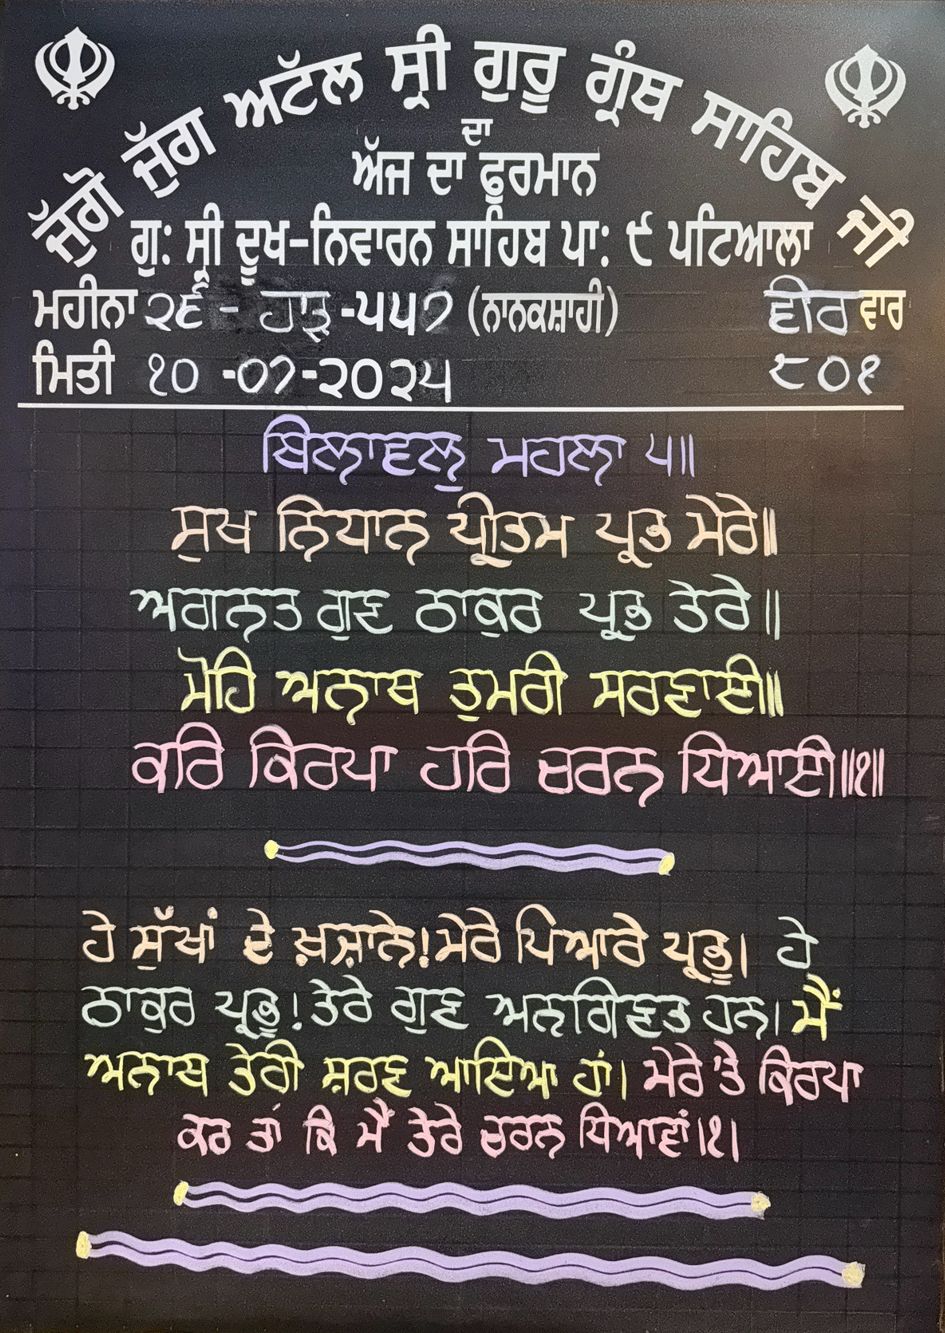 ਜੁੱਗੋ ਜੁੱਗ ਅਟੱਲ ਸ੍ਰੀ ਗੁਰੂ ਗ੍ਰੰਥ ਸਾਹਿਬ ਜੀ
ਦਾ
ਅੱਜ ਦਾ ਫੁਰਮਾਨ
ਗੁ: ਸ੍ਰੀ ਦੂਖ-ਨਿਵਾਰਨ ਸਾਹਿਬ ਪਾ: ੯ ਪਟਿਆਲਾ
ਮਹੀਨਾ ੨੬ - ਹਾੜ੍ਹ -੫੫੭ (ਨਾਨਕਸ਼ਾਹੀ) ਵੀਰ ਵਾਰ
ਮਿਤੀ ੧੦ -੦੭-੨੦੨੫ ੮੦੧
ਬਿਲਾਵਲੁ ਮਹਲਾ ੫॥
ਸੁਖ ਨਿਧਾਨ ਪ੍ਰੀਤਮ ਪ੍ਰਭ ਮੇਰੇ॥
ਅਗਨਤ ਗੁਣ ਠਾਕੁਰ ਪ੍ਰਭ ਤੇਰੇ॥
ਮੋਹਿ ਅਨਾਥ ਤੁਮਰੀ ਸਰਣਾਈ॥
ਕਰਿ ਕਿਰਪਾ ਹਰਿ ਚਰਨ ਧਿਆਈ॥੧॥
ਹੇ ਸੁੱਖਾਂ ਦੇ ਖ਼ਜ਼ਾਨੇ! ਮੇਰੇ ਪਿਆਰੇ ਪ੍ਰਭੂ। ਹੇ
ਠਾਕੁਰ ਪ੍ਰਭੂ! ਤੇਰੇ ਗੁਣ ਅਨਗਿਣਤ ਹਨ। ਮੈਂ
ਅਨਾਥ ਤੇਰੀ ਸ਼ਰਣ ਆਇਆ ਹਾਂ। ਮੇਰੇ 'ਤੇ ਕਿਰਪਾ
ਕਰ ਤਾਂ ਕਿ ਮੈਂ ਤੇਰੇ ਚਰਨ ਧਿਆਵਾਂ।੧।